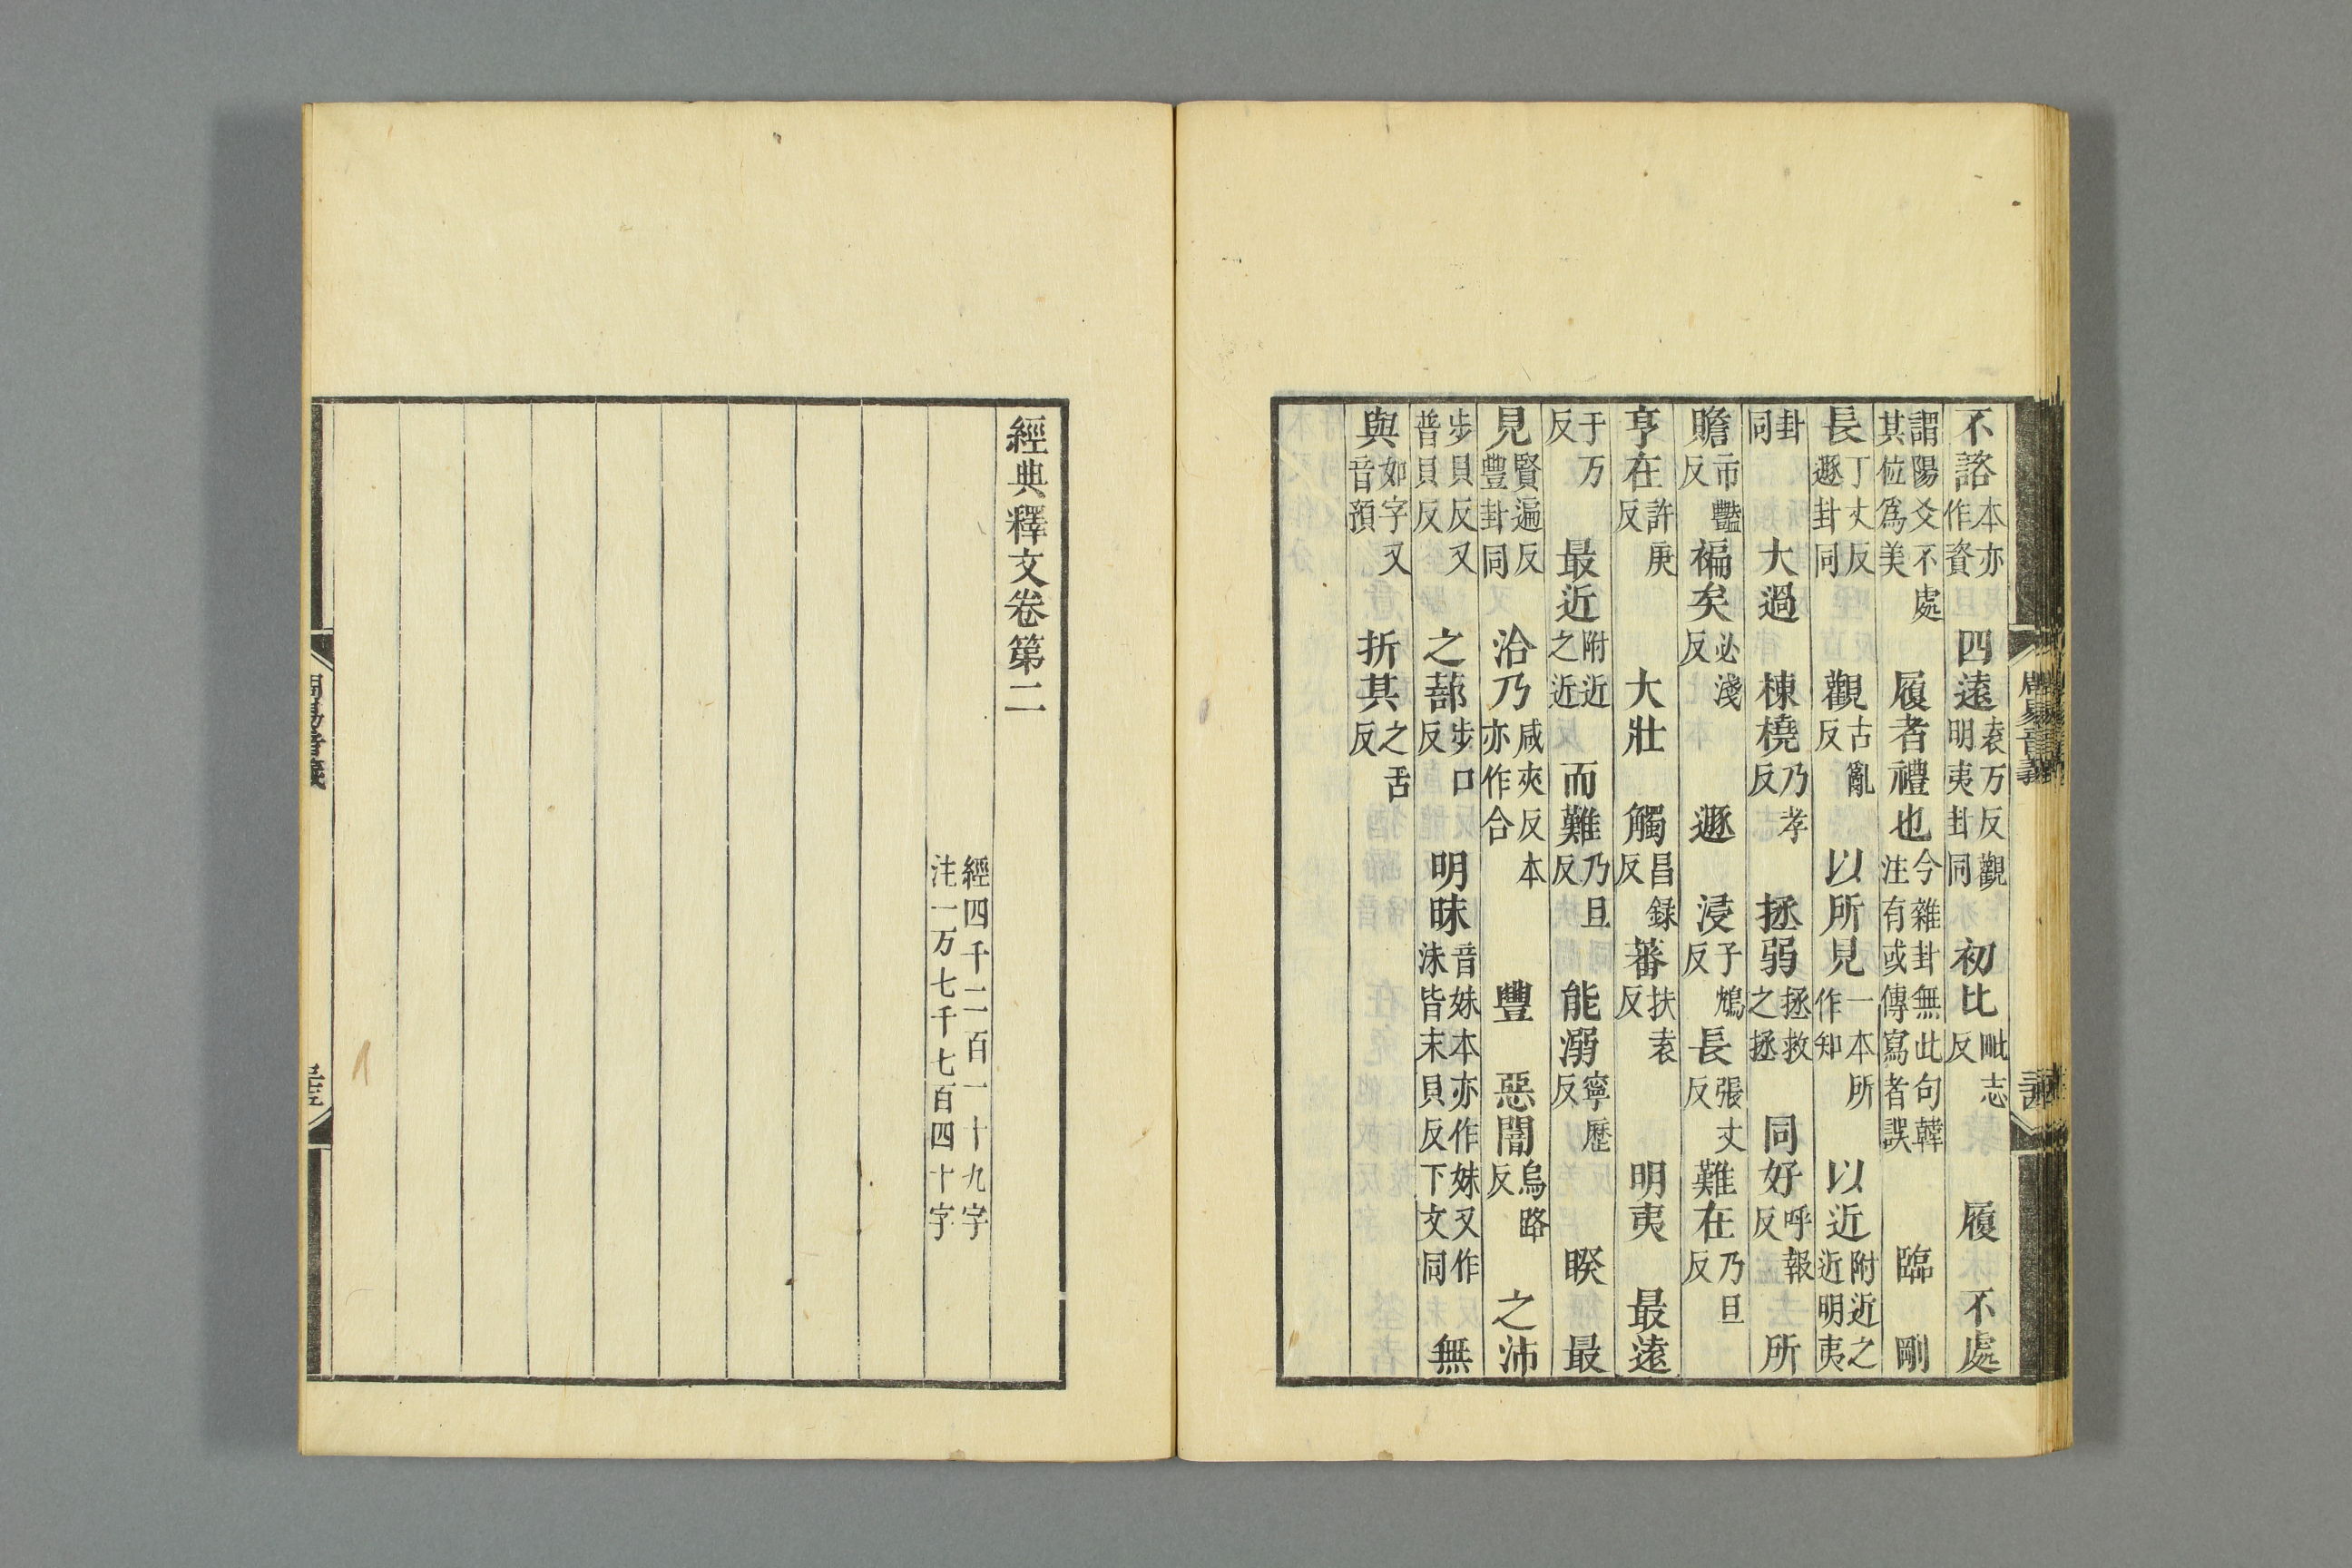 不諮本亦作資 四遠袁万反觀明夷卦同 初比毗志反 履 不處
謂陽爻不處其位爲美 履者禮也今雜卦無此句韓注有或傳寫者誤 臨 剛
長丁丈反遯卦同 觀古亂反 以所見一本所作知 以近附近之近明夷
卦同 大過 棟橈乃孝反 拯弱拯救之拯 同好呼報反 所
贍市豔反 褊矣必淺反 遯 浸子鴆反 長張丈反 難在乃旦反
亨在許庚反 大壯 觸昌録反 蕃扶袁反 明夷 最遠
于万反 最近附近之近 而難乃旦反 能溺寧歷反 睽 最
見賢遍反豐卦同 洽乃咸夾反本亦作合 豐 惡闇烏路反 之沛
步貝反又普貝反 之蔀步口反 明昧音妹本亦作妹又作沬皆末貝反下文同 無
與如字又音預 折其之舌反
經典釋文卷第二
經四千二百一十九字
注一万七千七百四十字
周易音義